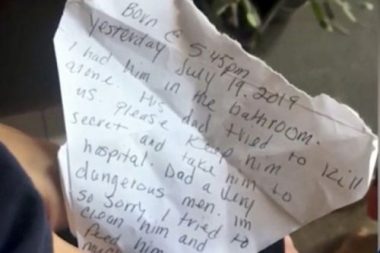 Born @ 5 45pm
Yesterday July 19 2019
I had him in the bathroom.
alone. His dad tried to kill
us. please Keep him
secret and take him to
hospital. Dad a very
dangerous men. Im
so sorry, I tried to
clean him and
feed him